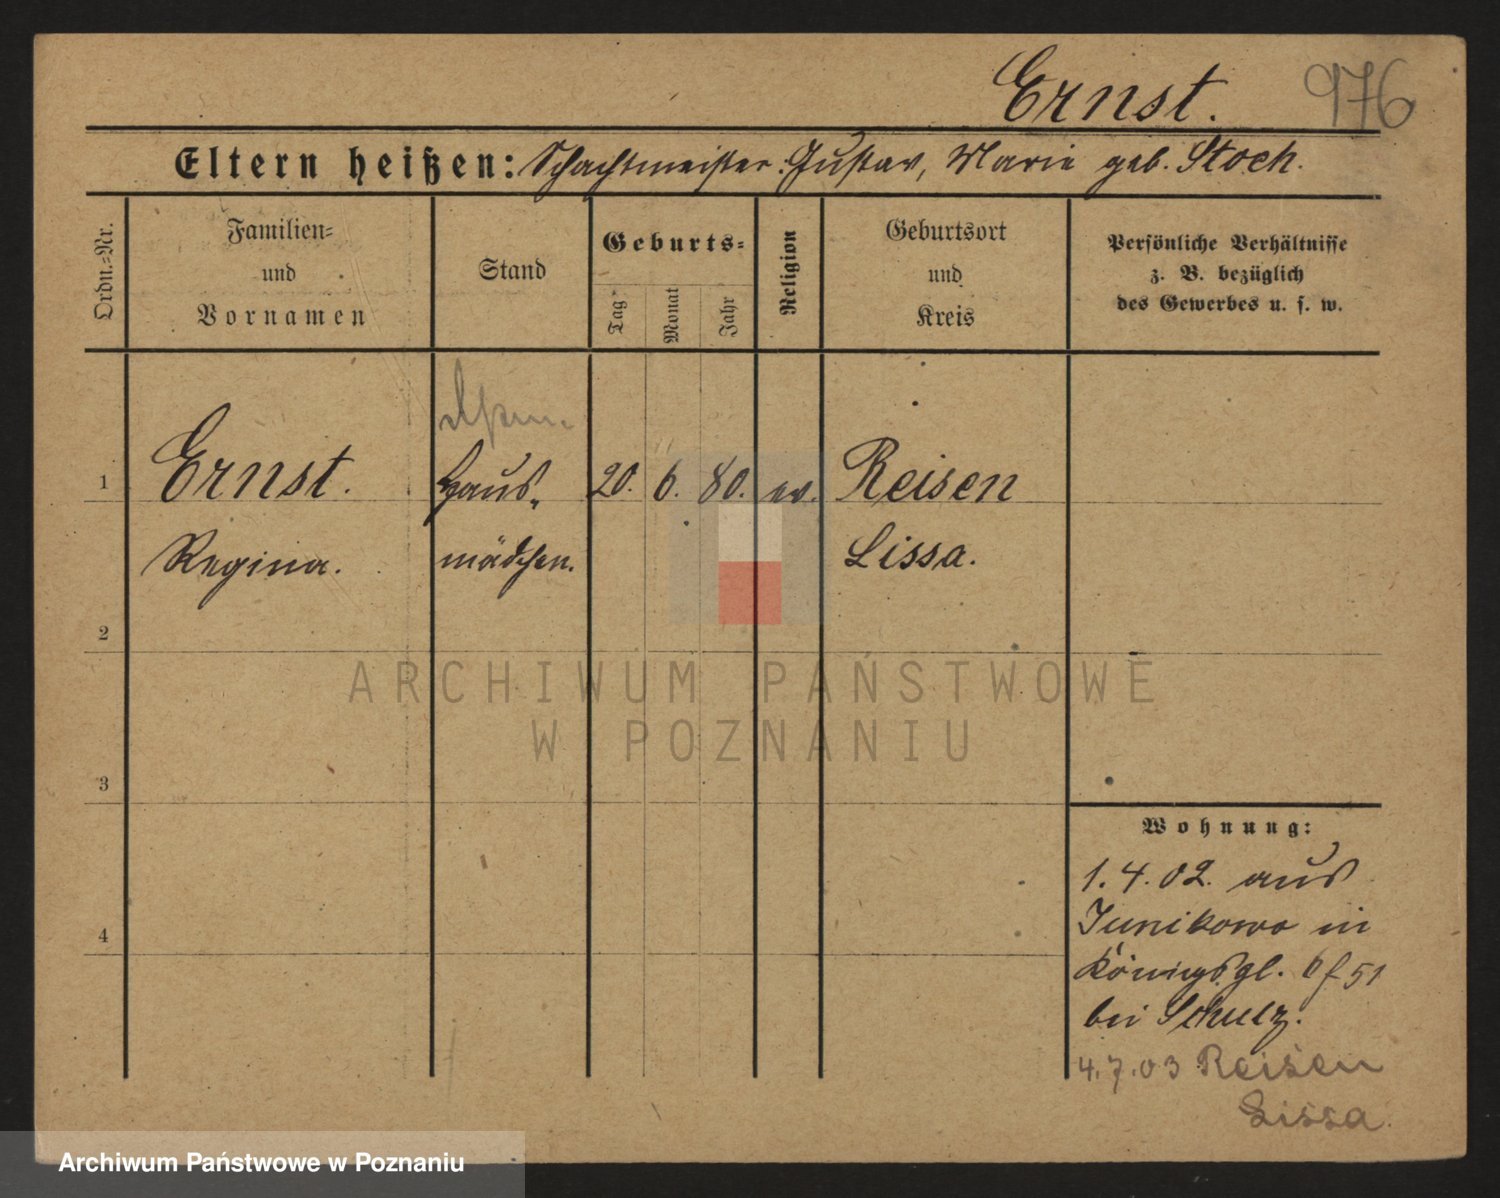 Ernst. 976
Eltern heißen: Schachtmeister Gustav, Marie geb. Stock.
Ordn.=Nr.
Familien=
und
Vornamen
Stand
Geburts=
Tag
Monat
Jahr
Religion
Geburtsort
und
Kreis
Persönliche Verhältnisse
z. B. bezüglich
des Gewerbes u. s. w.
1 Ernst. Haus- 20. 6. 80. ev. Reisen
Regina. mädchen. Lissa.
2
3
4
Wohnung:
1.4.02. aus
Junikowo in
Königspl. 6 f 51
bei Schulz.
4.7.03 Reisen
Lissa.
ARCHIWUM PAŃSTWOWE
W POZNANIU
Archiwum Państwowe w Poznaniu